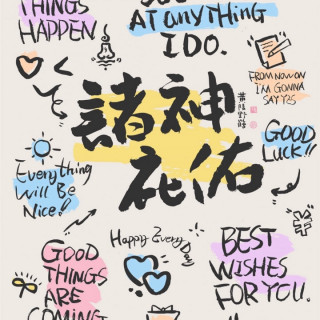 THINGS
HAPPEN
AT anyTHING
I DO.
FROM NOW ON
I'M GONNA
SAY YES
諸神
祐
GOOD
LUCK!!
Everything
Will Be
Nice!
Happy Every Day
GOOD
THINGS
ARE
COMING
BEST
WISHES
FOR YOU.